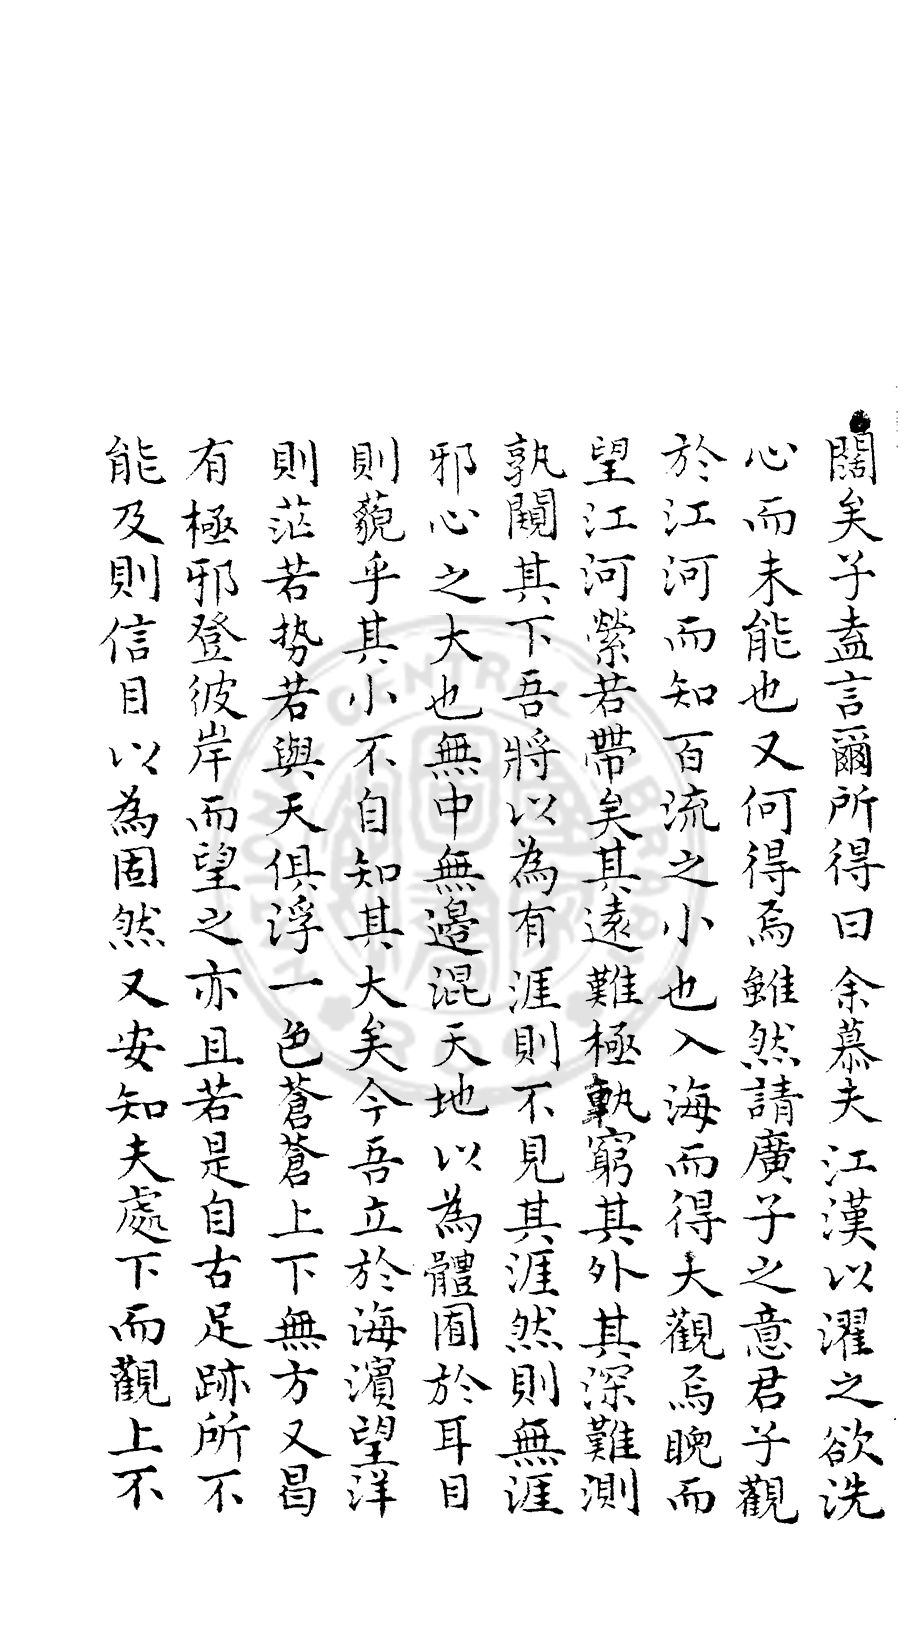 闊矣子盍言爾所得曰余慕夫江漢以濯之欲洗
心而未能也又何得焉雖然請廣子之意君子觀
於江河而知百流之小也入海而得大觀焉睌而
望江河縈若帶矣其遠難極孰窮其外其深難測
孰闚其下吾將以為有涯則不見其涯然則無涯
邪心之大也無中無邊混天地以為體囿於耳目
則藐乎其小不自知其大矣今吾立於海濱望洋
則茫若势若與天俱浮一色蒼蒼上下無方又曷
有極邪登彼岸而望之亦且若是自古足跡所不
能及則信目以為固然又安知夫處下而觀上不
NATIONAL CENTRAL LIBRARY